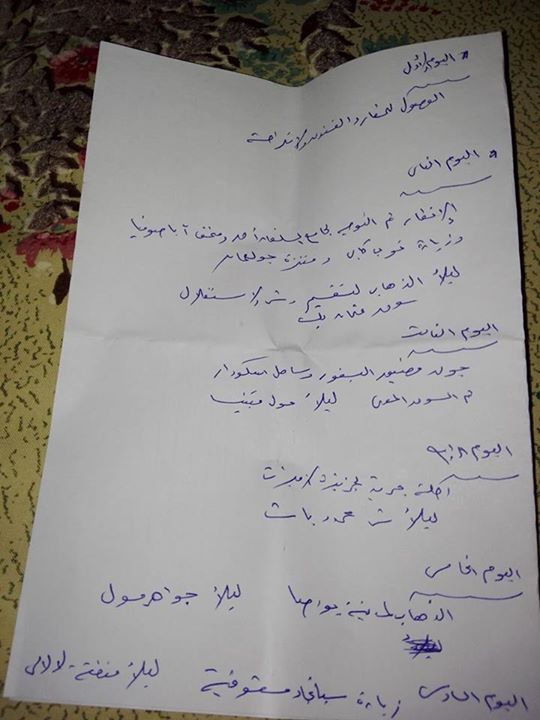 اليوم الأول
الوصول للمطار والفندق والاستراحة
اليوم الثاني
الإفطار ثم التوجه لجامع السلطان أحمد ومتحف آيا صوفيا
وزيارة توب كابي ومنتزه جولهانه
ليلاً الذهاب لتقسيم وش الاستقلال
سوق عثمان بك
اليوم الثالث
جولة مضيق البسفور وساحل اسكودار
ثم السوق المصري ليلاً مول
اليوم الرابع
رحلة بحرية لجزيرة الأميرات
ليلاً ش محمود باشا
اليوم الخامس
الذهاب لمدينة ليلاً جواهر مول
اليوم السادس زيارة سبانجا ومعشوقية ليلاً منطقة لالالي